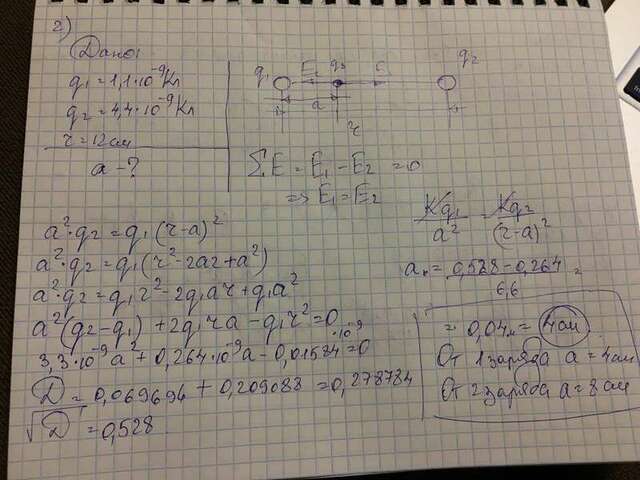 2)
Дано:
q1 = 1,1·10⁻⁹ Кл
q2 = 4,4·10⁻⁹ Кл
r = 12 см
a - ?
q1 E2 q3 E1 q2
a
r
ΣE = E1 - E2 = 0
=> E1 = E2
Kq1/a² = Kq2/(r-a)²
a²·q2 = q1(r-a)²
a²·q2 = q1(r²-2ar+a²)
a²·q2 = q1r²-2q1ar+q1a²
a²(q2-q1)+2q1ra-q1r²=0
3,3·10⁻⁹a²+0,264·10⁻⁹a-0,01584·10⁻⁹=0
D = 0,069694+0,209088=0,278784
√D = 0,528
a = (0,528-0,264)/6,6 =
= 0,04м = 4 см
От 1 заряда a = 4 см
От 2 заряда a = 8 см